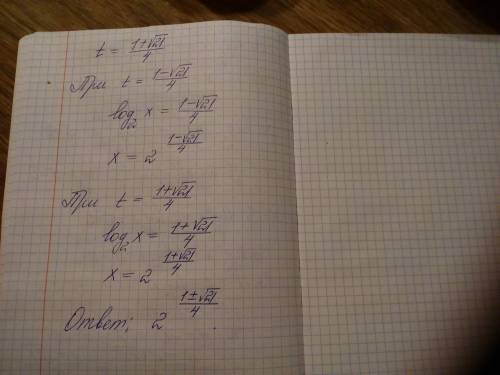 t = (1+√21)/4
При t = (1-√21)/4
log₂ x = (1-√21)/4
x = 2^((1-√21)/4)
При t = (1+√21)/4
log₂ x = (1+√21)/4
x = 2^((1+√21)/4)
Ответ: 2^((1±√21)/4).